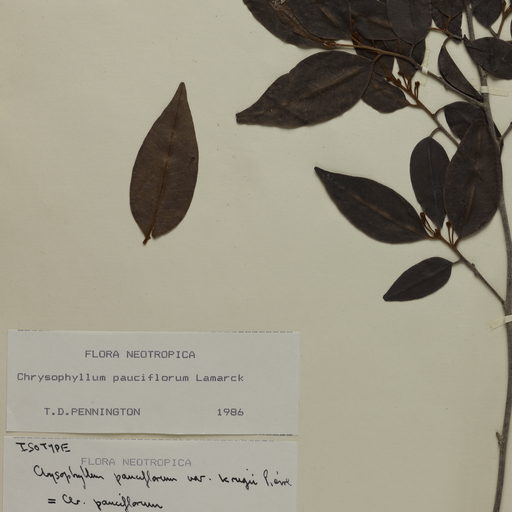 FLORA NEOTROPICA
Chrysophyllum pauciflorum Lamarck
T.D.PENNINGTON 1986
ISOTYPE
FLORA NEOTROPICA
Chrysophyllum pauciflorum var. krugii Pierre
= Chr. pauciflorum